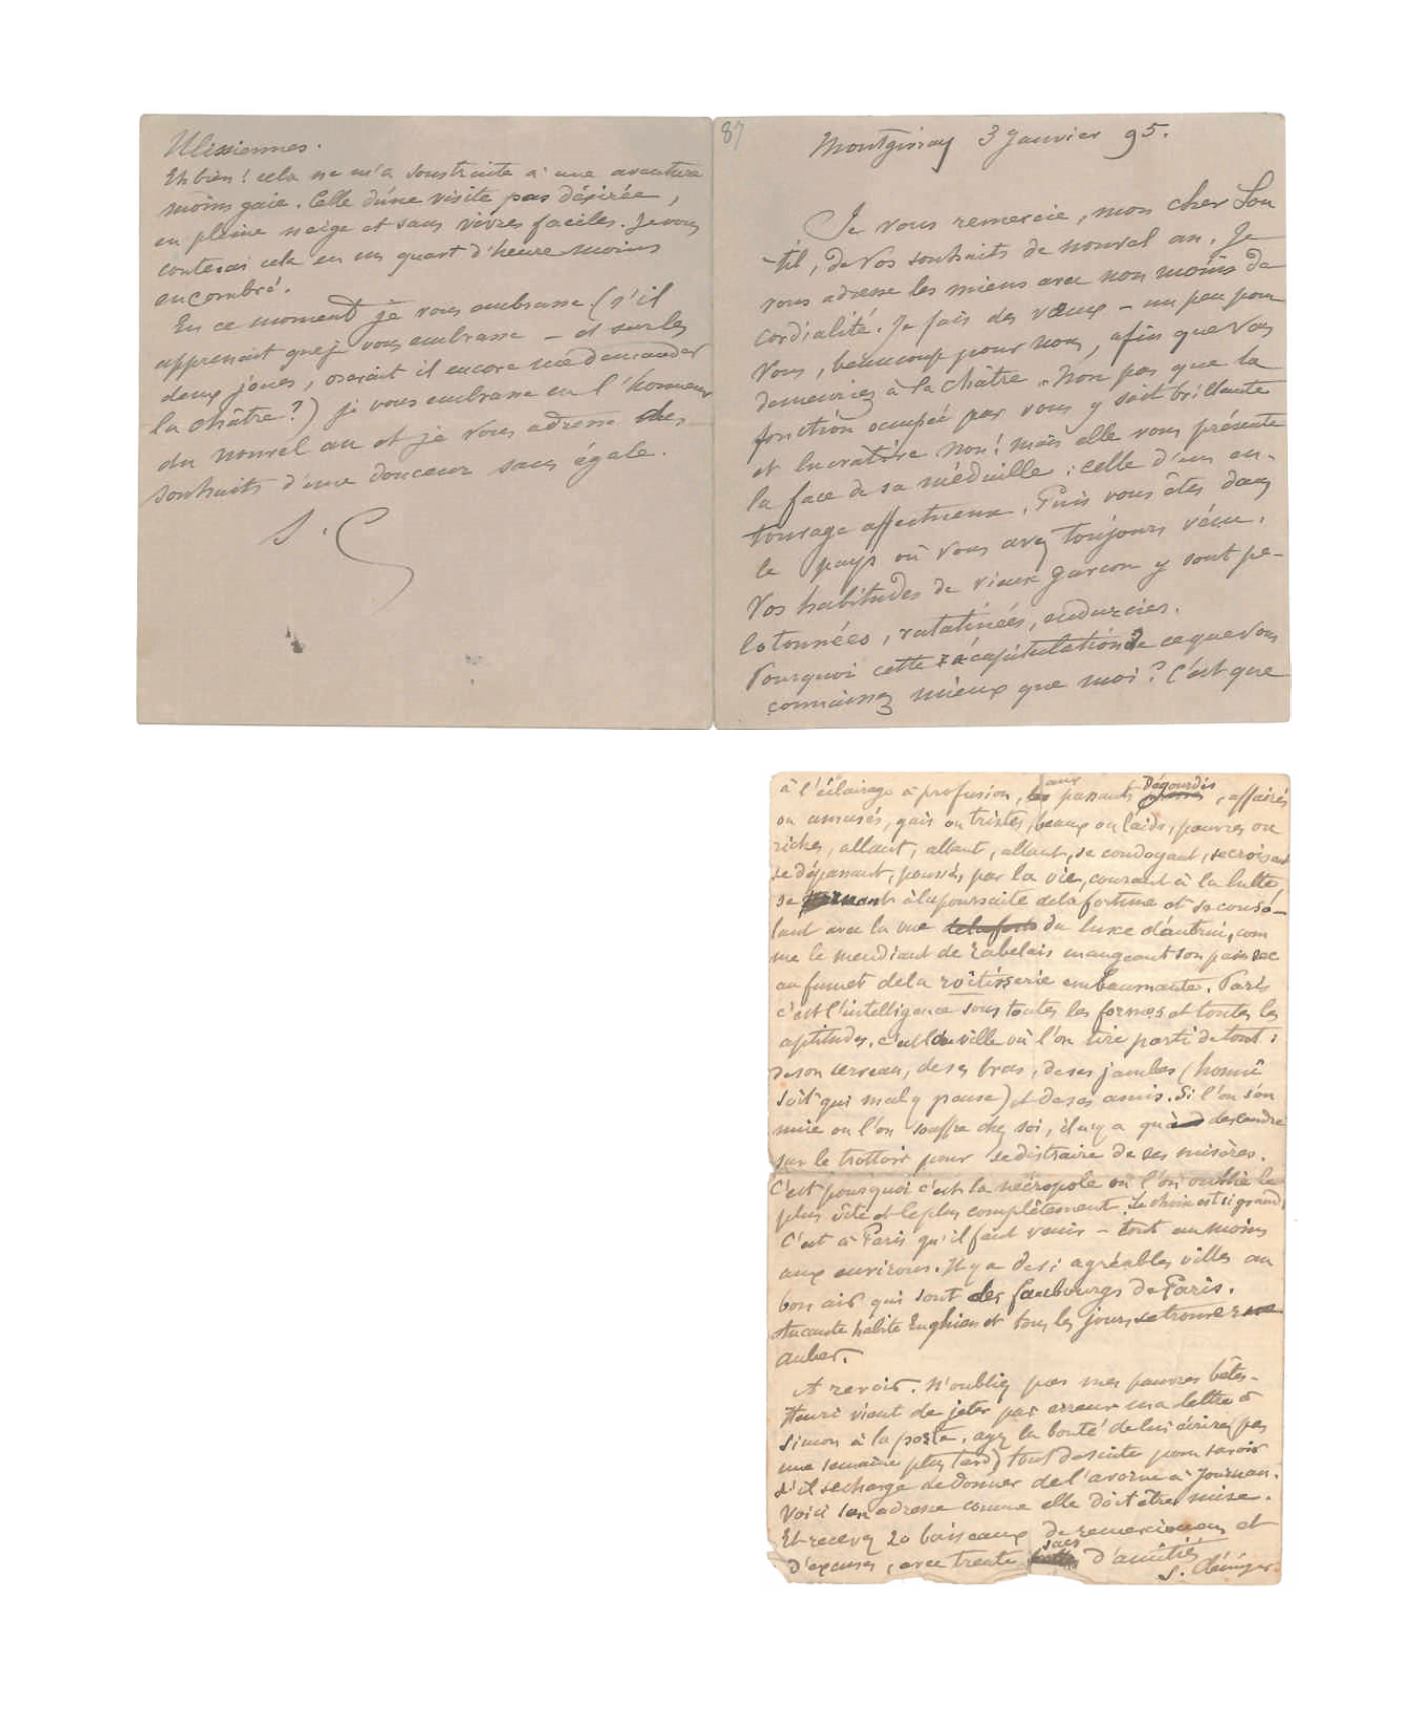 Ulissiennes.
Eh bien! cela ne m'a soustraite à une aventure
moins gaie. Celle d'une visite pas désirée,
en pleine neige et sans vivres faciles. Je vous
conterai cela en un quart d'heure moins
encombré.
En ce moment je vous embrasse (s'il
apprenait que je vous embrasse – et sur les
deux joues, oserait il encore me demander
la châtre?) je vous embrasse en l'honneur
du nouvel an et je vous adresse des
souhaits d'une douceur sans égale.
S. C
87
Montgivray 3 Janvier 95.
Je vous remercie, mon cher Sou
-til, de vos souhaits de nouvel an. Je
vous adresse les miens avec non moins de
cordialité. Je fais des vœux – un peu pour
vous, beaucoup pour nous, afin que vous
demeuriez à la châtre. Non pas que la
fonction occupée par vous y soit brillante
et lucrative non! mais elle vous présente
la face de sa médaille : celle d'un en-
tourage affectueux. Puis vous êtes dans
le pays où vous avez toujours vécu.
Vos habitudes de vieux garçon y sont pe-
lotonnées, ratatinées, endurcies.
Pourquoi cette récapitulation de ce que vous
connaissez mieux que moi? C'est que
à l'éclairage à profusion, aux passants Dégourdis, affairés
ou amusés, gais ou tristes, beaux ou laids, pauvres ou
riches, allant, allant, allant, se coudoyant, se croisant
se dépassant, poussés par la vie, courant à la lutte,
se à la poursuite de la fortune et se conso-
lant avec la vue du luxe d'autrui, com
me le mendiant de Rabelais mangeant son pain sec
au fumet de la rôtisserie embaumante. Paris
c'est l'intelligence sous toutes les formes et toutes les
aptitudes. c'est la ville où l'on tire parti de tout :
de son cerveau, de ses bras, de ses jambes (honni
soit qui mal y pense) et de ses amis. Si l'on s'en
nuie ou l'on souffre chez soi, il n'y a qu'à descendre
sur le trottoir pour se distraire de ses misères.
C'est pourquoi c'est la nécropole où l'on oublie le
plus vite et le plus complètement. Le choix est si grand
C'est à Paris qu'il faut venir – tout au moins
aux environs. Il y a de si agréables villes au
bon air qui sont des faubourgs de Paris.
habite Enghien et tous les jours se trouve rue
auber.
A revoir. N'oubliez pas mes pauvres bêtes –
Henri vient de jeter par erreur ma lettre à
Simon à la poste. ayez la bonté de lui écrire (pas
une semaine plus tard) tout de suite pour savoir
s'il se charge de donner de l'avoine à Journan.
Voici son adresse comme elle doit être mise.
Et recevez 20 boisseaux de remerciemens et
d'excuses, avec trente sacs d'amitié
S. Clésinger.